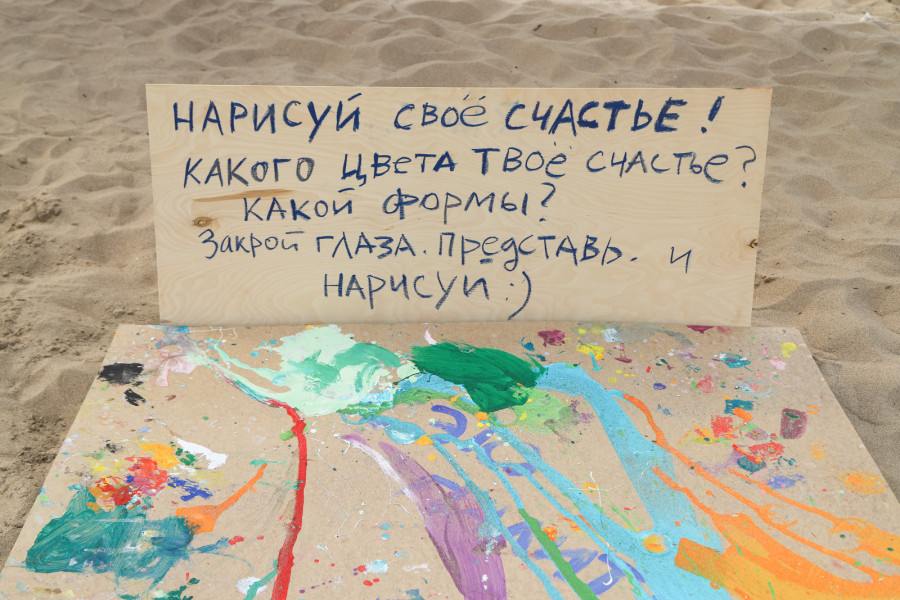 НАРИСУЙ СВОЁ СЧАСТЬЕ!
КАКОГО ЦВЕТА ТВОЁ СЧАСТЬЕ?
КАКОЙ ФОРМЫ?
Закрой ГЛАЗА. Представь. и
НАРИСУЙ :)